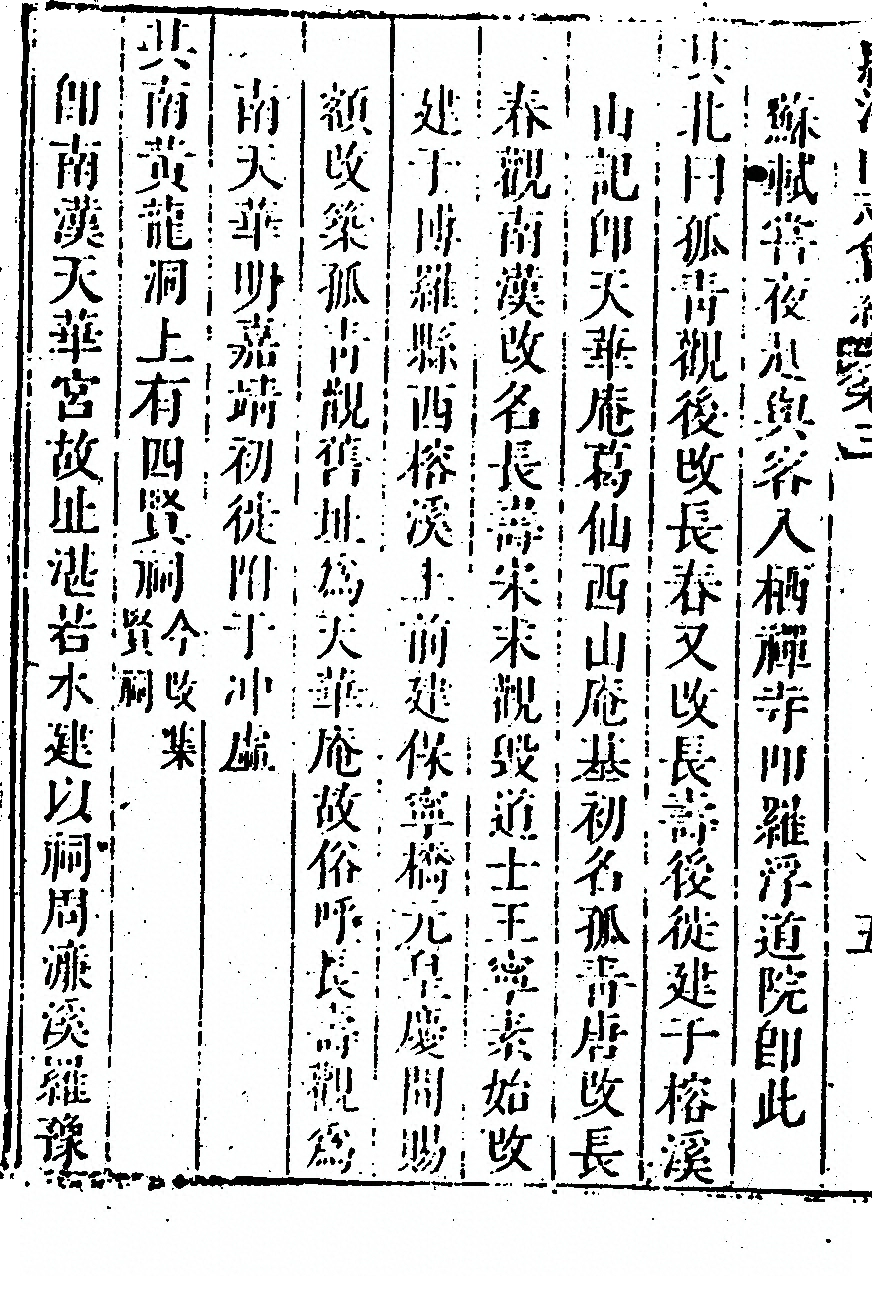 蘇軾嘗夜起與客入栖禪寺叩羅浮道院即此
其北曰孤青觀後改長春又改長壽後徙建于榕溪
山記即天華庵葛仙西山庵基初名孤青唐改長
春觀南漢改名長壽宋末觀毀道士王寧素始改
建于博羅縣西榕溪上前建保寧橋元皇慶間賜
額改築孤青觀舊址為天華庵故俗呼長壽觀為
南天華明嘉靖初徙附于冲虛
其南黃龍洞上有四賢祠今改集賢祠
即南漢天華宮故址湛若水建以祠周濂溪羅豫